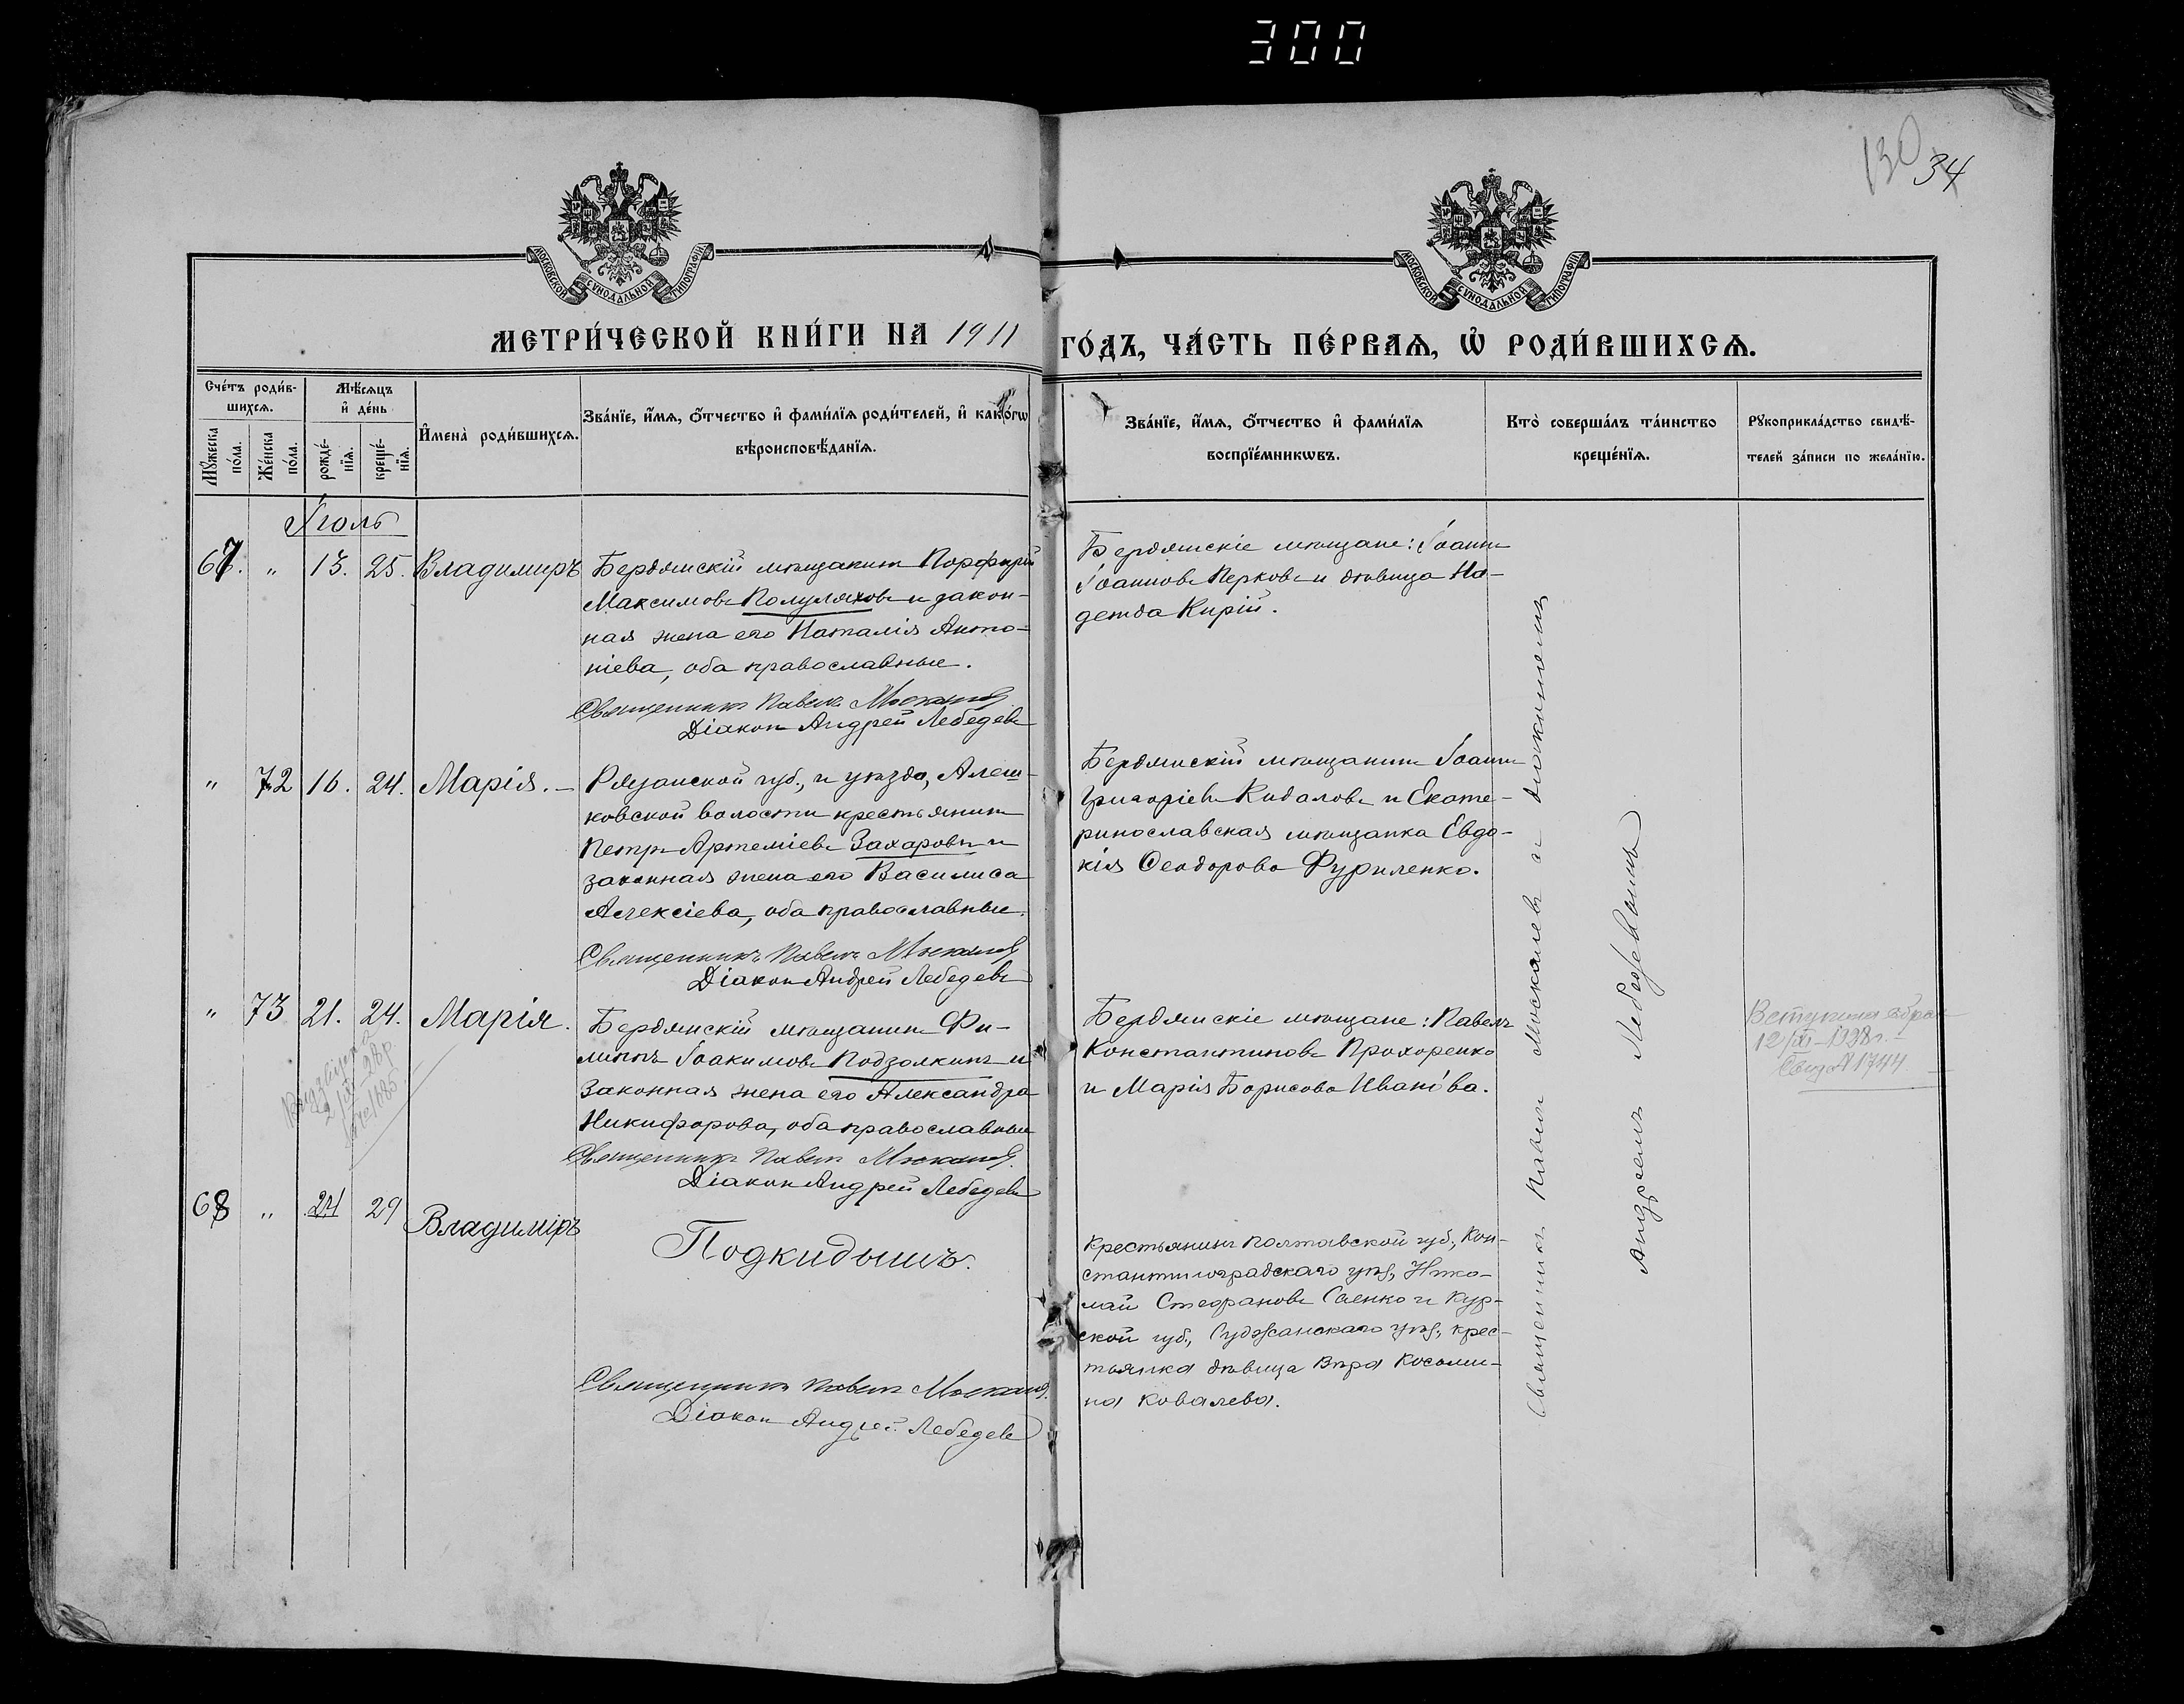 300
130 34
МОСКОВСКОЙ СУНОДАЛЬНОЙ ТИПОГРАФІИ
МОСКОВСКОЙ СУНОДАЛЬНОЙ ТИПОГРАФІИ
МЕТРИ́ЧЕСКОЙ КНИ́ГИ НА 1911 ГО́ДЪ, ЧА́СТЬ ПЕ́РВАѦ, Ѡ҆ РОДИ́ВШИХСѦ.
Сче́тъ роди́в-
шихсѧ.
Мꙋ́жеска по́ла.
Же́нска по́ла.
Мѣ́сѧцъ
и҆ де́нь
рожде́-
нїѧ.
креще́-
нїѧ.
И҆мена̀ роди́вшихсѧ.
Зва́нїе, и҆́мѧ, ѻ҆́тчество и҆ фами́лїѧ роди́телей, и҆ како́гѡ
вѣроисповѣ́данїѧ.
Зва́нїе, и҆́мѧ, ѻ҆́тчество и҆ фами́лїѧ
воспрїе́мникѡвъ.
Кто̀ соверша́лъ та́инство
креще́нїѧ.
Рꙋкоприкла́дство свидѣ́-
телей за́писи по жела́нїю.
Іюль
67. " 13. 25. Владимиръ
Бердянскій мѣщанинъ Порфирій
Максимовъ Полуляховъ и закон-
ная жена его Наталія Анто-
ніева, оба православные.
Священникъ Павелъ Москалевъ
Діаконъ Андрей Лебедевъ
Бердянскіе мѣщане: Іоаннъ
Іоанновъ Перковъ и дѣвица На-
дежда Кирій.
" 72 16. 24. Марія. –
Рязанской губ., и уѣзда, Алеш-
ковской волости крестьянинъ
Петръ Артеміевъ Захаровъ и
законная жена его Василиса
Алексіева, оба православные.
Священникъ Павелъ Москалевъ
Діаконъ Андрей Лебедевъ
Бердянскій мѣщанинъ Іоаннъ
Григоріевъ Кидаловъ и Екате-
ринославская мѣщанка Евдо-
кія Ѳеодорова Фуриленко.
" 73 21. 24. Марія.
Бердянскій мѣщанинъ Фи-
липпъ Іоакимовъ Подзолкинъ и
законная жена его Александра
Никифорова, оба православные
Священникъ Павелъ Москалевъ.
Діаконъ Андрей Лебедевъ
Бердянскіе мѣщане: Павелъ
Константиновъ Прохоренко
и Марія Борисова Иванова.
12/XI–1938 г.
1744
68 " 24 29 Владиміръ
Подкидышъ.
Священникъ Павелъ Москалевъ.
Діаконъ Андрей Лебедевъ
Крестьянинъ Полтавской губ., Кон-
стантиноградскаго уѣз., Нико-
лай Стефановъ Саенко и Кур-
ской губ., Суджанскаго уѣз., крес-
тьянка дѣвица Вѣра Косьми-
на Ковалева.
Священникъ Павелъ Москалевъ и діакономъ
Андреемъ Лебедевымъ